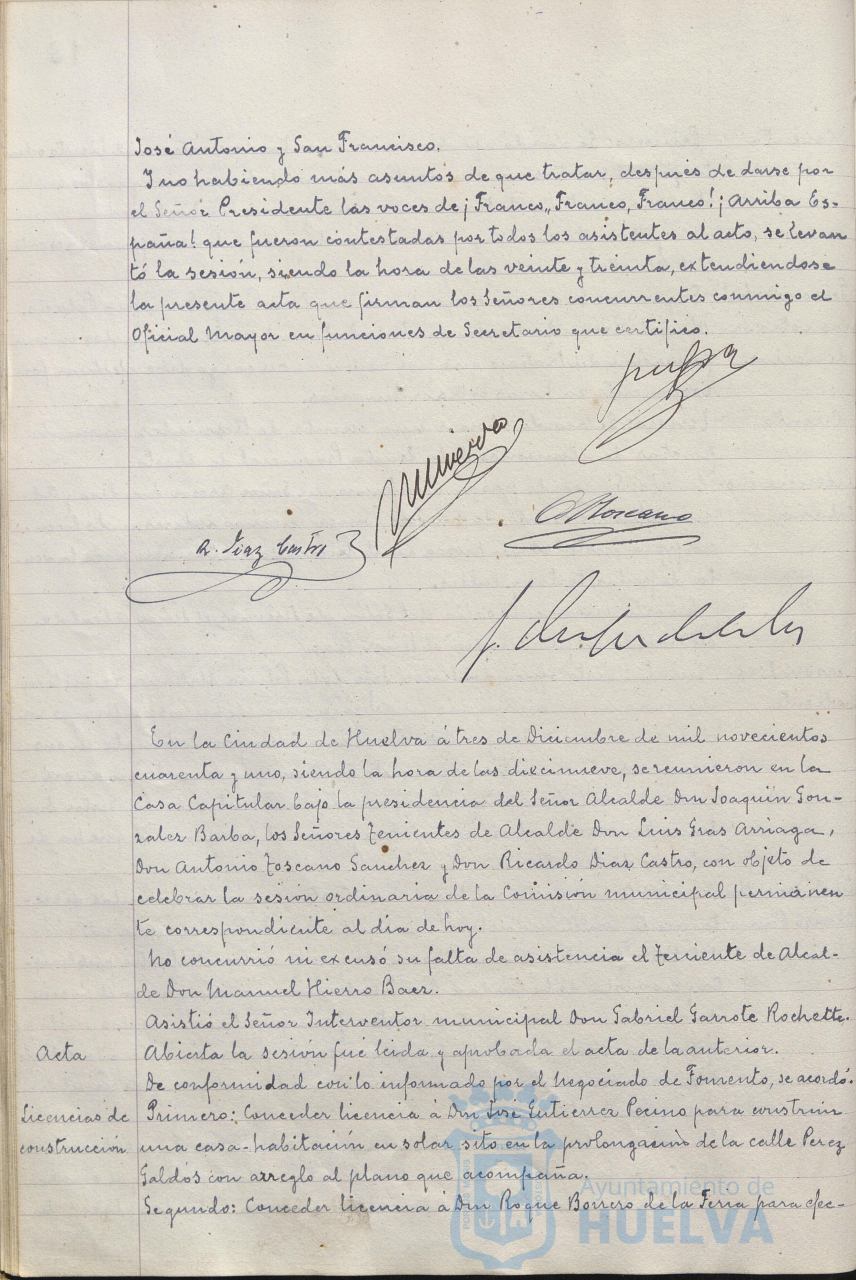 José Antonio y San Francisco.
Y no habiendo más asuntos de que tratar, después de darse por
el Señor Presidente las voces de ¡Franco, Franco, Franco! ¡Arriba Es-
paña! que fueron contestadas por todos los asistentes al acto, se levan
tó la sesión, siendo la hora de las veinte y treinta, extendiendose
la presente acta que firman los Señores concurrentes conmigo el
Oficial Mayor en funciones de Secretario que certifico.
R. Diaz Castro
A Toscano
En la Ciudad de Huelva á tres de Diciembre de mil novecientos
cuarenta y uno, siendo la hora de las diecinueve, se reunieron en la
Casa Capitular bajo la presidencia del Señor Alcalde Don Joaquin Gon-
zalez Barba, los Señores Tenientes de Alcalde Don Luis Gras Arriaga,
Don Antonio Toscano Sanchez y Don Ricardo Diaz Castro, con objeto de
celebrar la sesión ordinaria de la Comisión municipal permanen
te correspondiente al día de hoy.
No concurrió ni excusó su falta de asistencia el Teniente de Alcal-
de Don Manuel Hierro Baez.
Asistió el Señor Interventor municipal Don Gabriel Garrote Rochette.
Acta
Abierta la sesión fué leida y aprobada el acta de la anterior.
De conformidad con lo informado por el negociado de Fomento, se acordó:
Licencias de
construcción
Primero: Conceder licencia á Don José Gutierrez Pecino para construir
una casa-habitación en solar sito en la prolongación de la calle Perez
Galdós con arreglo al plano que acompaña.
Segundo: Conceder licencia á Don Roque Borrero de la Feria para efec-
Ayuntamiento de
HUELVA